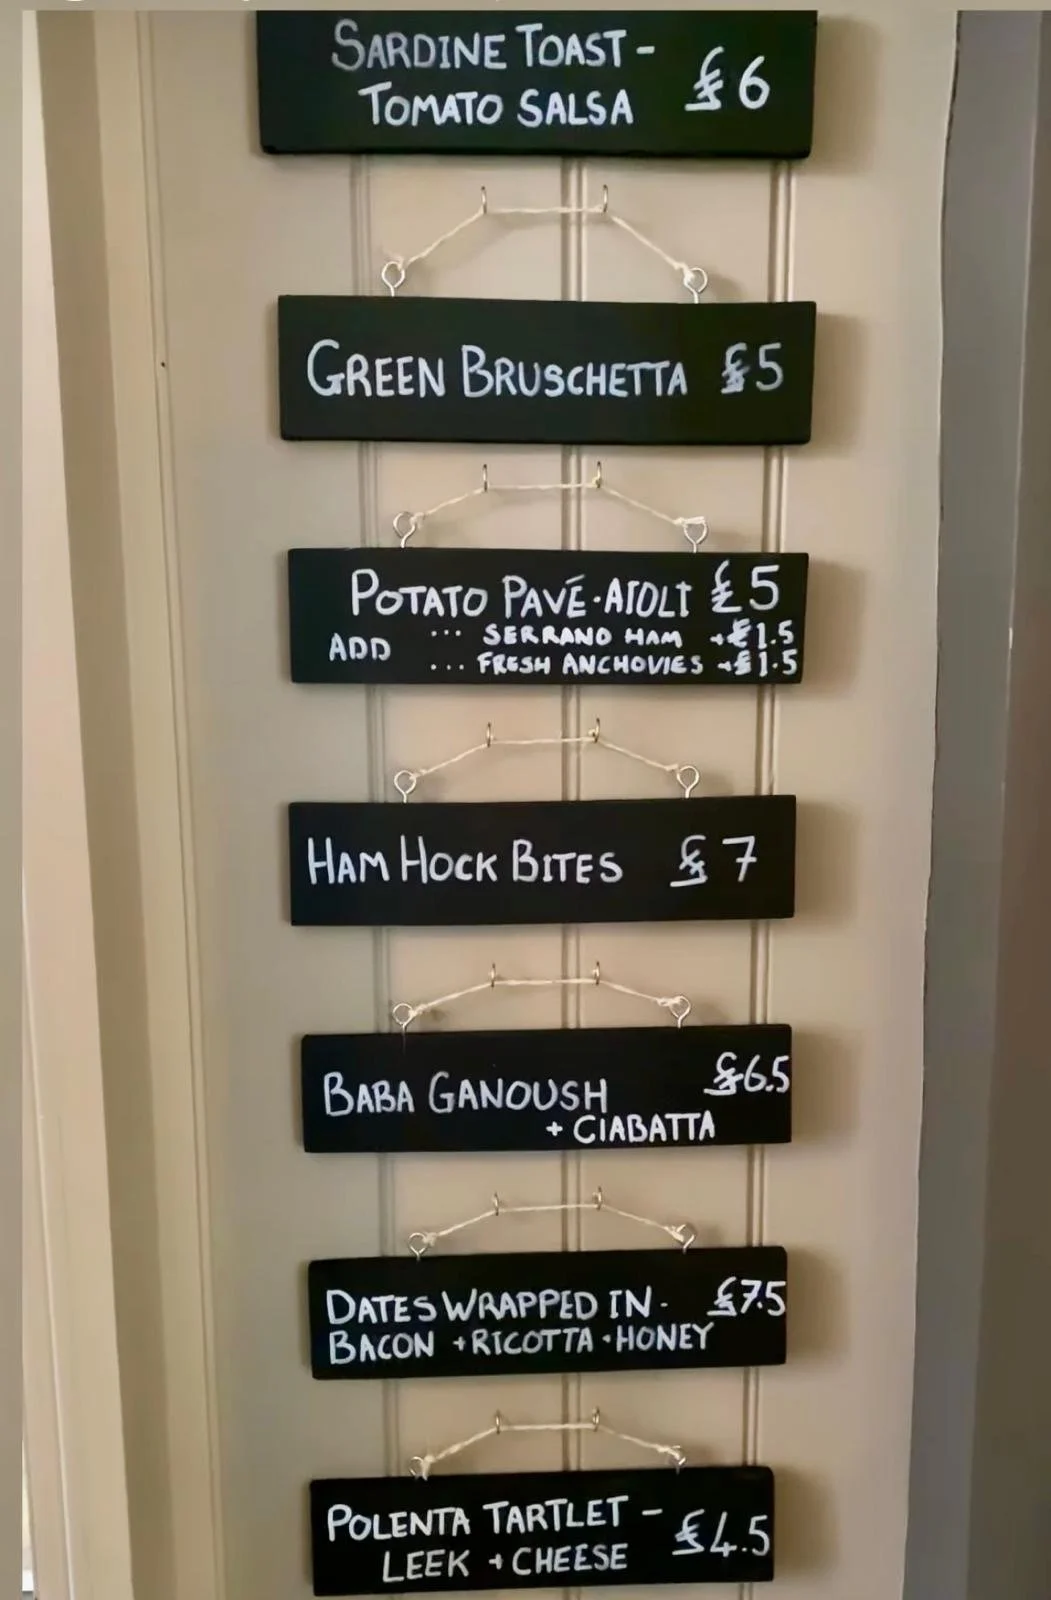 SARDINE TOAST -
TOMATO SALSA £6
GREEN BRUSCHETTA £5
POTATO PAVÉ · AIOLI £5
ADD ... SERRANO HAM +£1.5
... FRESH ANCHOVIES +£1.5
HAM HOCK BITES £7
BABA GANOUSH £6.5
+ CIABATTA
DATES WRAPPED IN · £7.5
BACON + RICOTTA · HONEY
POLENTA TARTLET - £4.5
LEEK + CHEESE